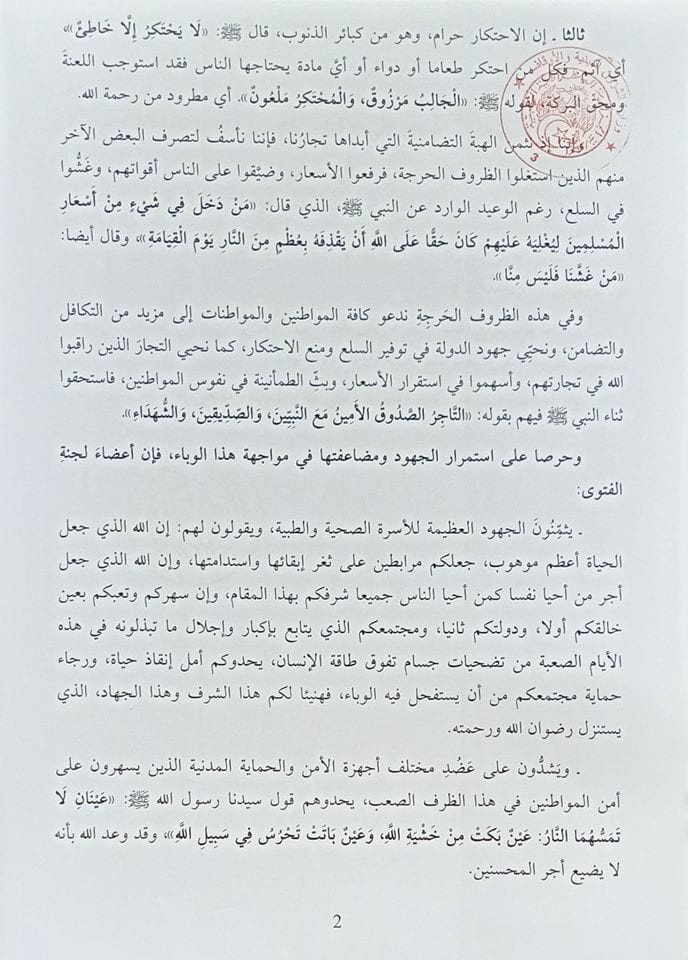 ثالثا ـ إن الاحتكار حرام، وهو من كبائر الذنوب، قال ﷺ: «لَا يَحْتَكِرُ إِلَّا خَاطِئٌ»،
أي آثم. فكل من احتكر طعاما أو دواء أو أيَّ مادة يحتاجها الناس فقد استوجب اللعنةَ
ومحقَ البركة، لقوله ﷺ: «الْجَالِبُ مَرْزُوقٌ، وَالْمُحْتَكِرُ مَلْعُونٌ». أي مطرود من رحمة الله.
وإننا إذ نثمن الهبةَ التضامنيةَ التي أبداها تجارُنا، فإننا نأسفُ لتصرف البعض الآخر
منهم الذين استغلوا الظروف الحرجة، فرفعوا الأسعار، وضيَّقوا على الناس أقواتهم، وغَشُّوا
في السلع، رغم الوعيد الوارد عن النبي ﷺ، الذي قال: «مَنْ دَخَلَ فِي شَيْءٍ مِنْ أَسْعَارِ
الْمُسْلِمِينَ لِيُغْلِيَهُ عَلَيْهِمْ كَانَ حَقًّا عَلَى اللَّهِ أَنْ يَقْذِفَهُ بِعُظْمٍ مِنَ النَّارِ يَوْمَ الْقِيَامَةِ»، وقال أيضا:
«مَنْ غَشَّنَا فَلَيْسَ مِنَّا».
وفي هذه الظروف الحَرجةِ ندعو كافة المواطنين والمواطنات إلى مزيد من التكافل
والتضامن، ونحيِّي جهود الدولة في توفير السلع ومنع الاحتكار، كما نحيي التجارَ الذين راقبوا
الله في تجارتهم، وأسهموا في استقرار الأسعار، وبثِّ الطمأنينة في نفوس المواطنين، فاستحقوا
ثناء النبي ﷺ فيهم بقوله: «التَّاجِرُ الصَّدُوقُ الأَمِينُ مَعَ النَّبِيِّينَ، وَالصِّدِّيقِينَ، وَالشُّهَدَاءِ».
وحرصا على استمرار الجهود ومضاعفتها في مواجهة هذا الوباء، فإن أعضاءَ لجنةِ
الفتوى:
ـ يثمِّنُونَ الجهود العظيمة للأسرة الصحية والطبية، ويقولون لهم: إن الله الذي جعل
الحياة أعظم موهوب، جعلكم مرابطين على ثغر إبقائها واستدامتها، وإن الله الذي جعل
أجر من أحيا نفسا كمن أحيا الناس جميعا شرفكم بهذا المقام، وإن سهركم وتعبكم بعين
خالقكم أولا، ودولتكم ثانيا، ومجتمعكم الذي يتابع بإكبار وإجلال ما تبذلونه في هذه
الأيام الصعبة من تضحيات جسام تفوق طاقة الإنسان، يحدوكم أمل إنقاذ حياة، ورجاء
حماية مجتمعكم من أن يستفحل فيه الوباء، فهنيئا لكم هذا الشرف وهذا الجهاد، الذي
يستنزل رضوان الله ورحمته.
ـ ويَشدُّون على عَضُدِ مختلف أجهزة الأمن والحماية المدنية الذين يسهرون على
أمن المواطنين في هذا الظرف الصعب، يحدوهم قول سيدنا رسول الله ﷺ: «عَيْنَانِ لَا
تَمَسُّهُمَا النَّارُ: عَيْنٌ بَكَتْ مِنْ خَشْيَةِ اللَّهِ، وَعَيْنٌ بَاتَتْ تَحْرُسُ فِي سَبِيلِ اللَّهِ»، وقد وعد الله بأنه
لا يضيع أجر المحسنين.
2